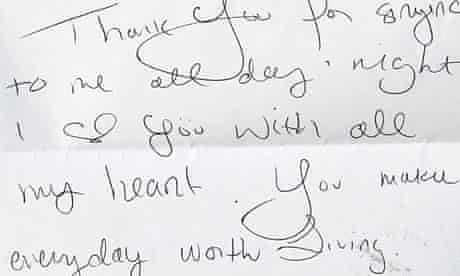 Thank You for
to me all day night
I You with all
my heart. You make
everyday worth living.